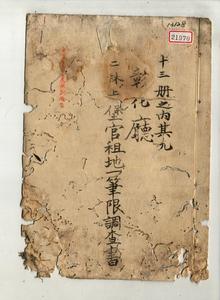 十三冊之內其九
彰化廳
二林上堡官租地一筆限調查書
21970